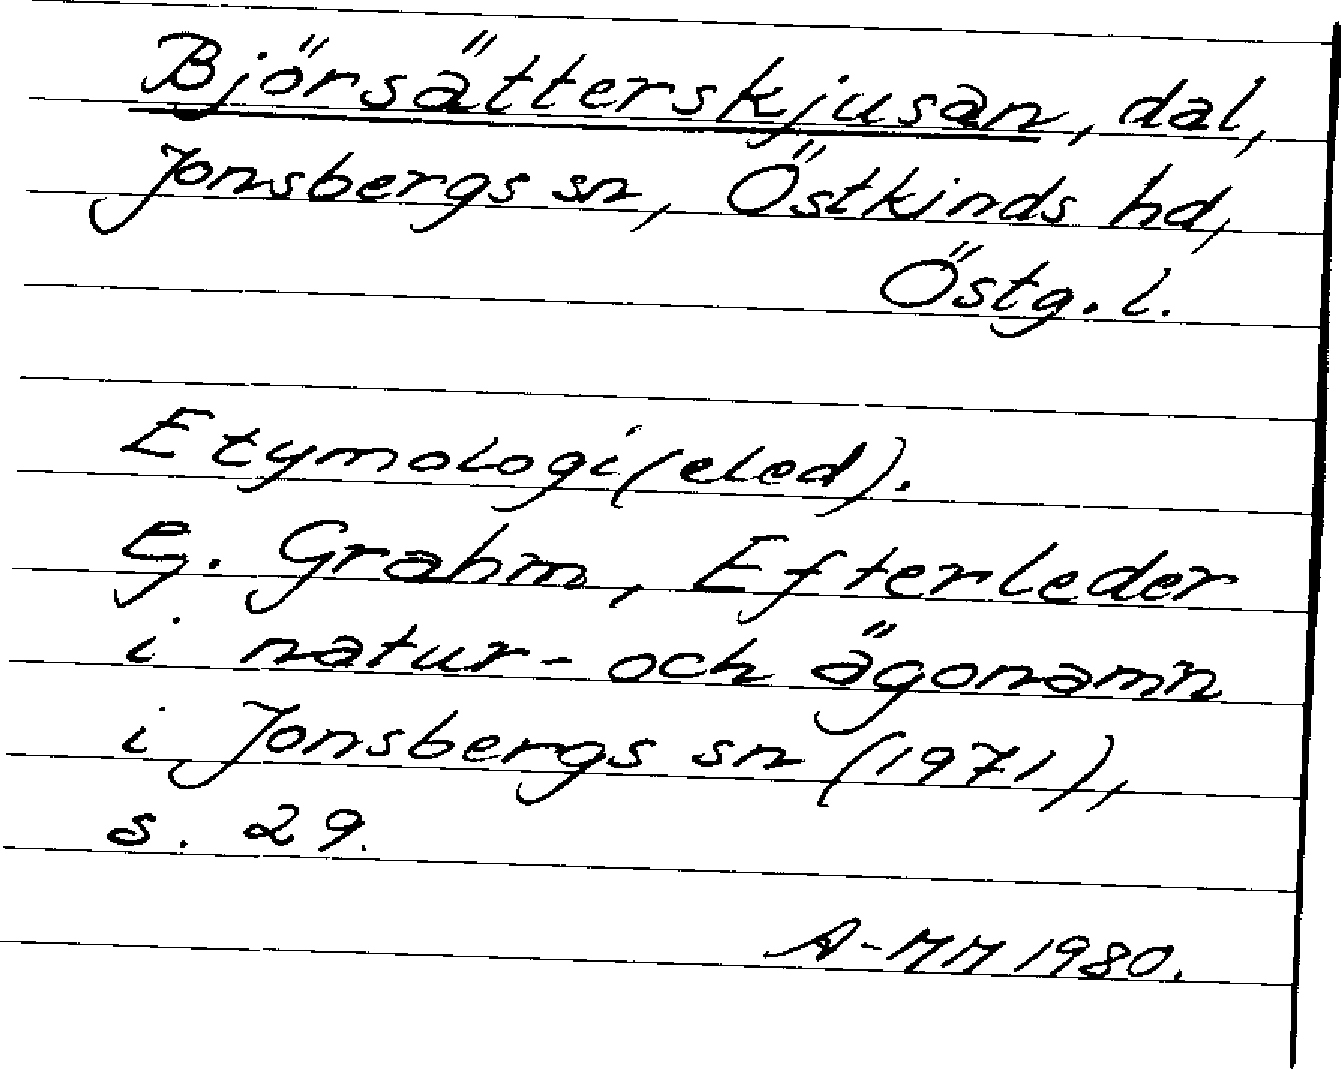 Björsätterskjusan, dal,
Jonsbergs sn, Östkinds hd,
Östg. l.
Etymologi (eled).
G. Grahm, Efterleder
i natur- och ägonamn
i Jonsbergs sn (1971),
s. 29.
A-MM 1980.